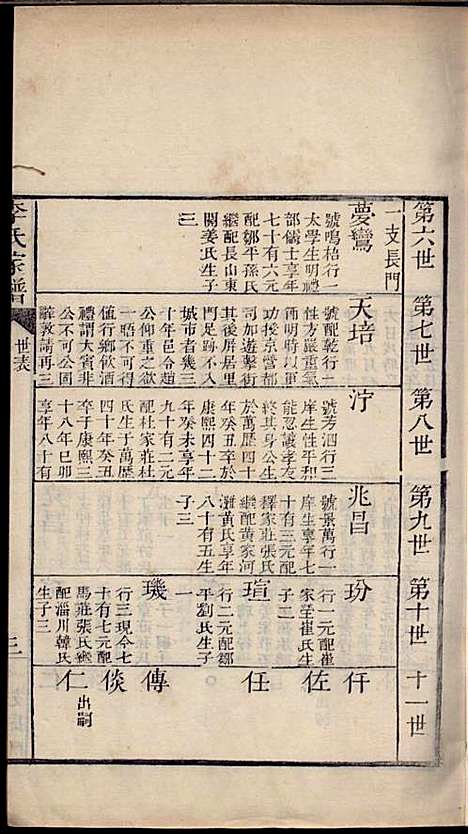 第六世
第七世
第八世
第九世
第十世
十一世
一支長門
夢鸞
號鳴梧行一
太學生明禮
部儒士享年
七十有六元
配鄒平孫氏
繼配長山東
關姜氏生子
三
天培
號配乾行一
性方嚴重氣
節明時以都
功授京營都
司加遊擊銜
其後屏居里
門足跡不入
城市者幾三
十年邑令趙
公仰重之欲
一晤不可得
值行鄉飲酒
禮謂大賓非
公不可公固
辭敦請再三
泞
號芳泗行三
庠生性平和
能忍讓孝友
終其身公生
於萬歷四十
年癸丑卒於
康熙四十二
年癸未享年
九十有二元
配杜家莊杜
氏生于萬歷
四十年癸丑
卒子康熙三
十八年己卯
享年八十有
兆昌
號景萬行一
庠生享年七
十有三元配
釋家莊張氏
繼配黃家河
灘黃氏享年
八十有五生
子三
玢
行一元配崔
家莹崔氏生
子二
瑄
行二元配鄒
平劉氏生子
一
璣
行三現今七
十有七元配
馬莊張氏繼
配淄川韓氏
生子三
仠
佐
任
傳
倓
仁
出嗣
李氏家譜
世表
三